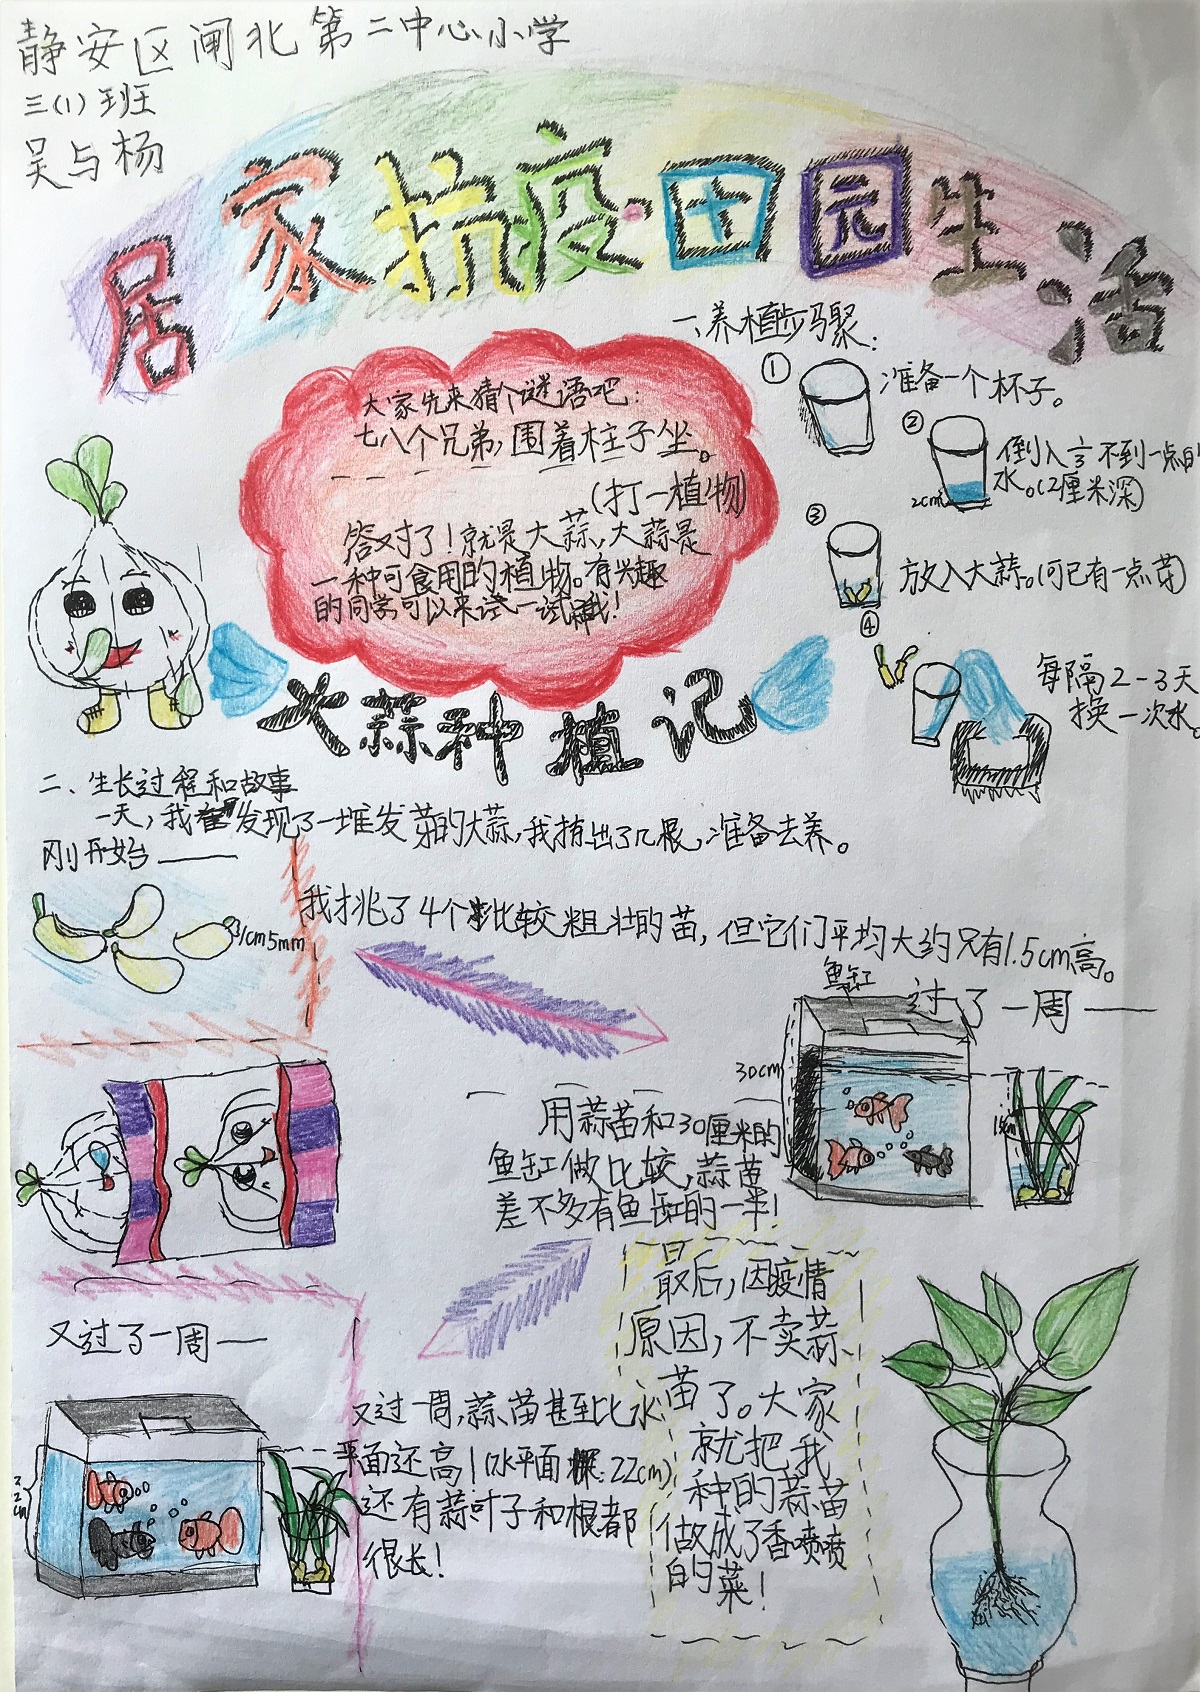 静安区闸北第二中心小学
三(1)班
吴与杨
居家抗疫·田园生活
大家先来猜个谜语吧：
七八个兄弟，围着柱子坐。
(打一植物)
答对了！就是大蒜，大蒜是
一种可食用的植物。有兴趣
的同学可以来试一试哦！
大蒜种植记
一、养植步骤：
① 准备一个杯子。
② 倒入 不到一点的
水。(2厘米深)
2cm
③ 放入大蒜。(可已有一点芽)
④ 每隔2-3天
换一次水。
二、生长过程和故事
一天，我发现了一堆发芽的大蒜，我挑出了几根，准备去养。
刚开始——
1cm5mm
我挑了4个比较粗壮的苗，但它们平均大约只有1.5cm高。
过了一周——
鱼缸
30cm
15cm
用蒜苗和30厘米的
鱼缸做比较，蒜苗
差不多有鱼缸的一半！
又过了一周—
22cm
又过一周，蒜苗甚至比水
平面还高！(水平面:22cm)
还有蒜叶子和根都
很长！
最后，因疫情
原因，不卖蒜
苗了。大家
就把我
种的蒜苗
做成了香喷喷
的菜！